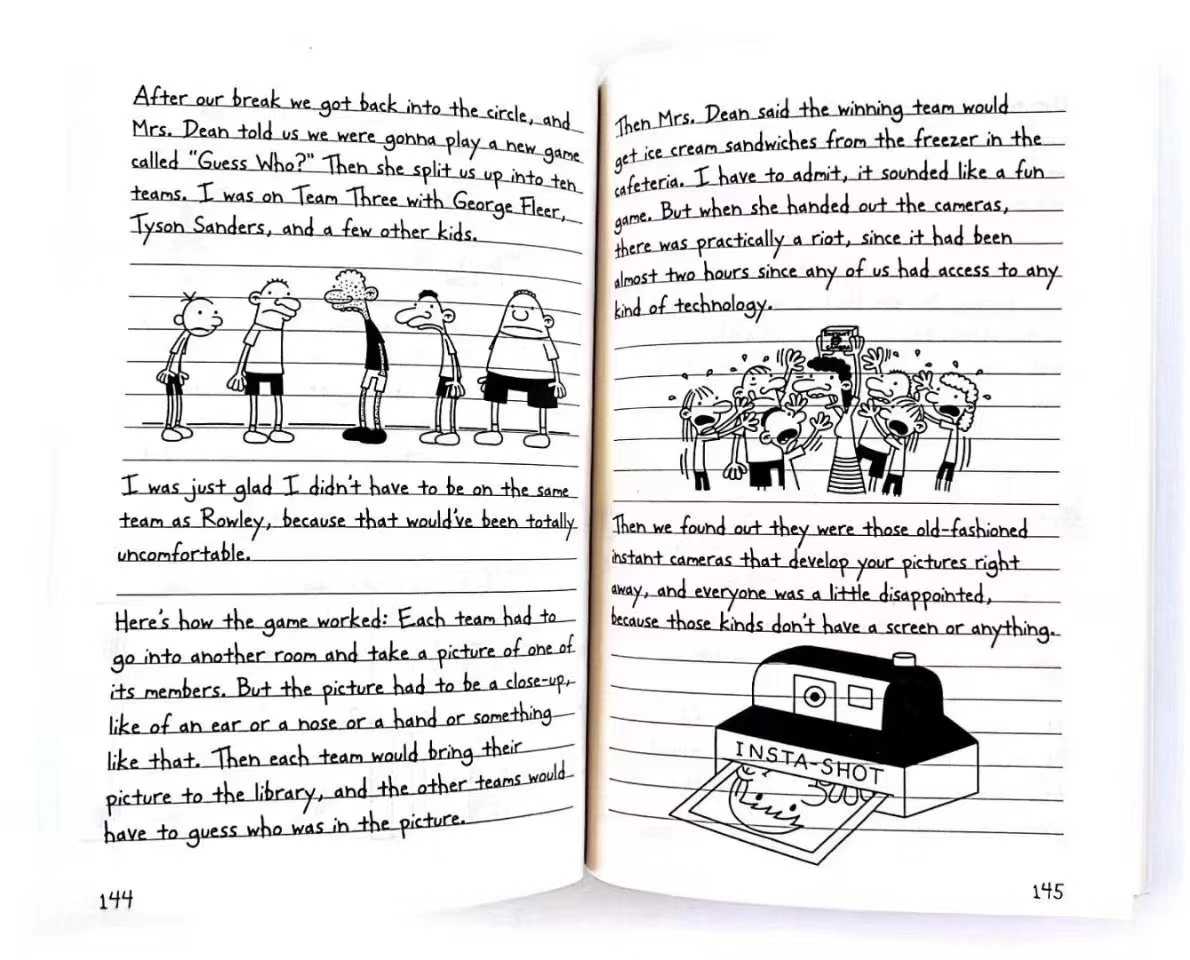 After our break we got back into the circle, and
Mrs. Dean told us we were gonna play a new game
called "Guess Who?" Then she split us up into ten
teams. I was on Team Three with George Fleer,
Tyson Sanders, and a few other kids.
I was just glad I didn't have to be on the same
team as Rowley, because that would've been totally
uncomfortable.
Here's how the game worked: Each team had to
go into another room and take a picture of one of
its members. But the picture had to be a close-up,
like of an ear or a nose or a hand or something
like that. Then each team would bring their
picture to the library, and the other teams would
have to guess who was in the picture.
144
Then Mrs. Dean said the winning team would
get ice cream sandwiches from the freezer in the
cafeteria. I have to admit, it sounded like a fun
game. But when she handed out the cameras,
there was practically a riot, since it had been
almost two hours since any of us had access to any
kind of technology.
Then we found out they were those old-fashioned
instant cameras that develop your pictures right
away, and everyone was a little disappointed,
because those kinds don't have a screen or anything.
INSTA-SHOT
145